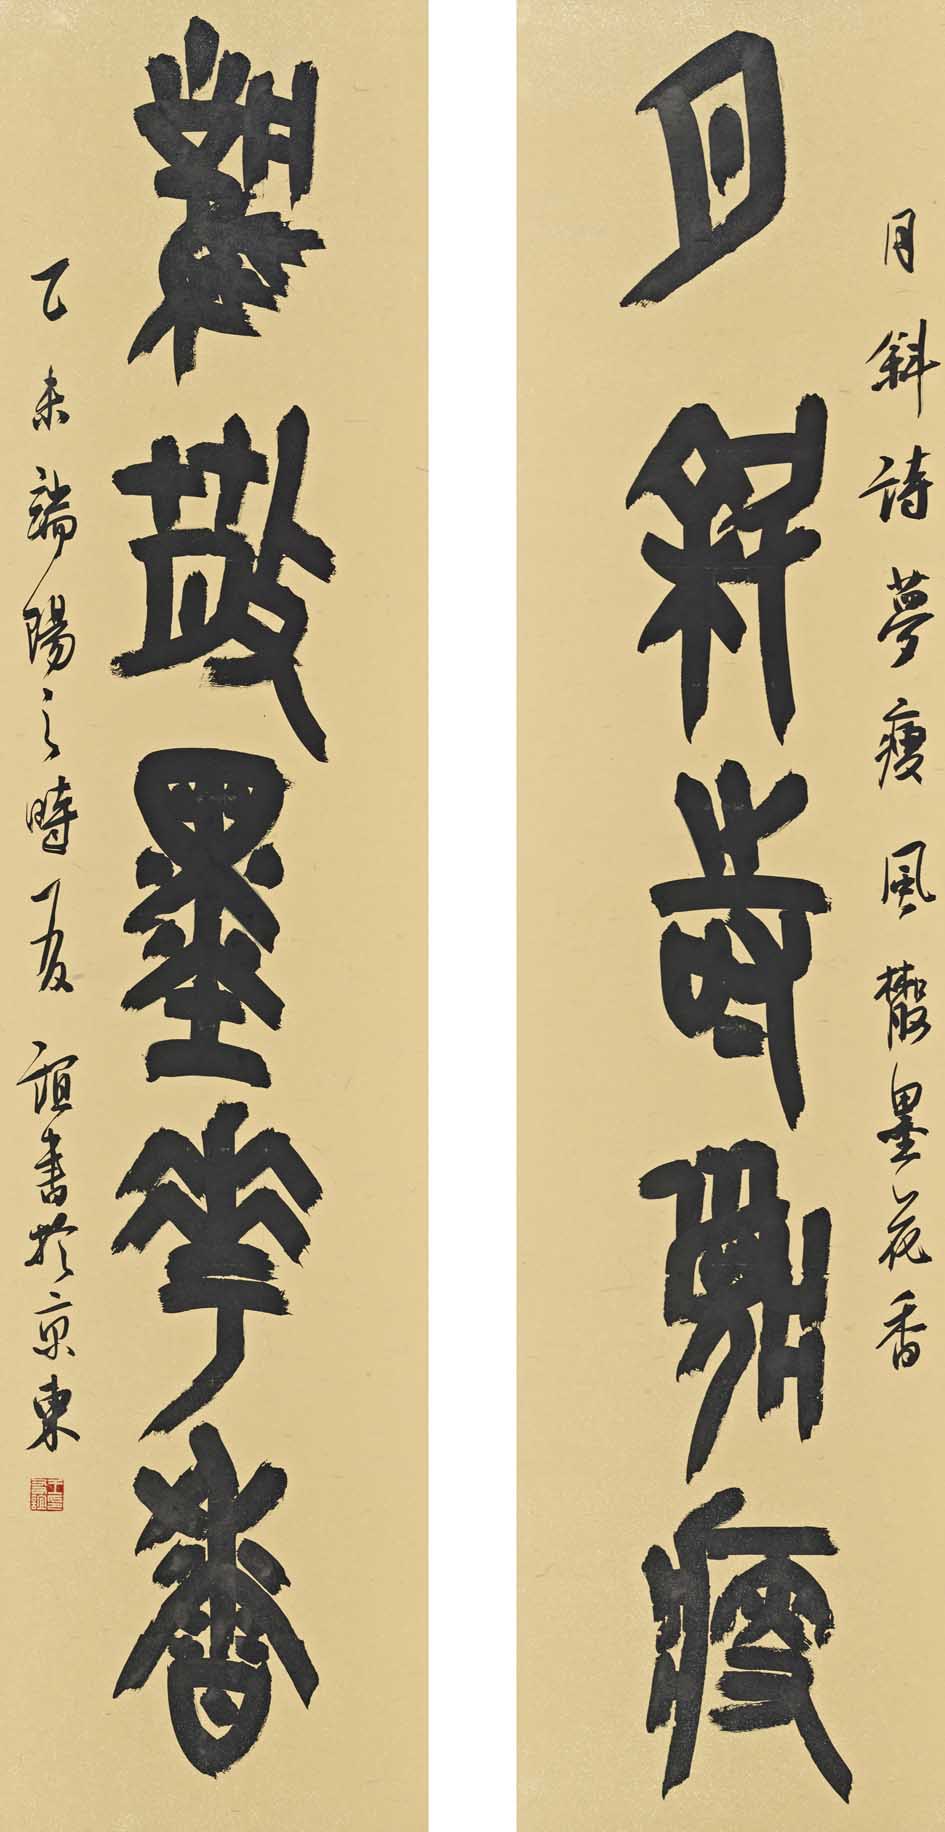 月斜詩夢瘦風散墨花香
月斜詩夢瘦
風散墨花香
乙未端陽之時友誼書於京東